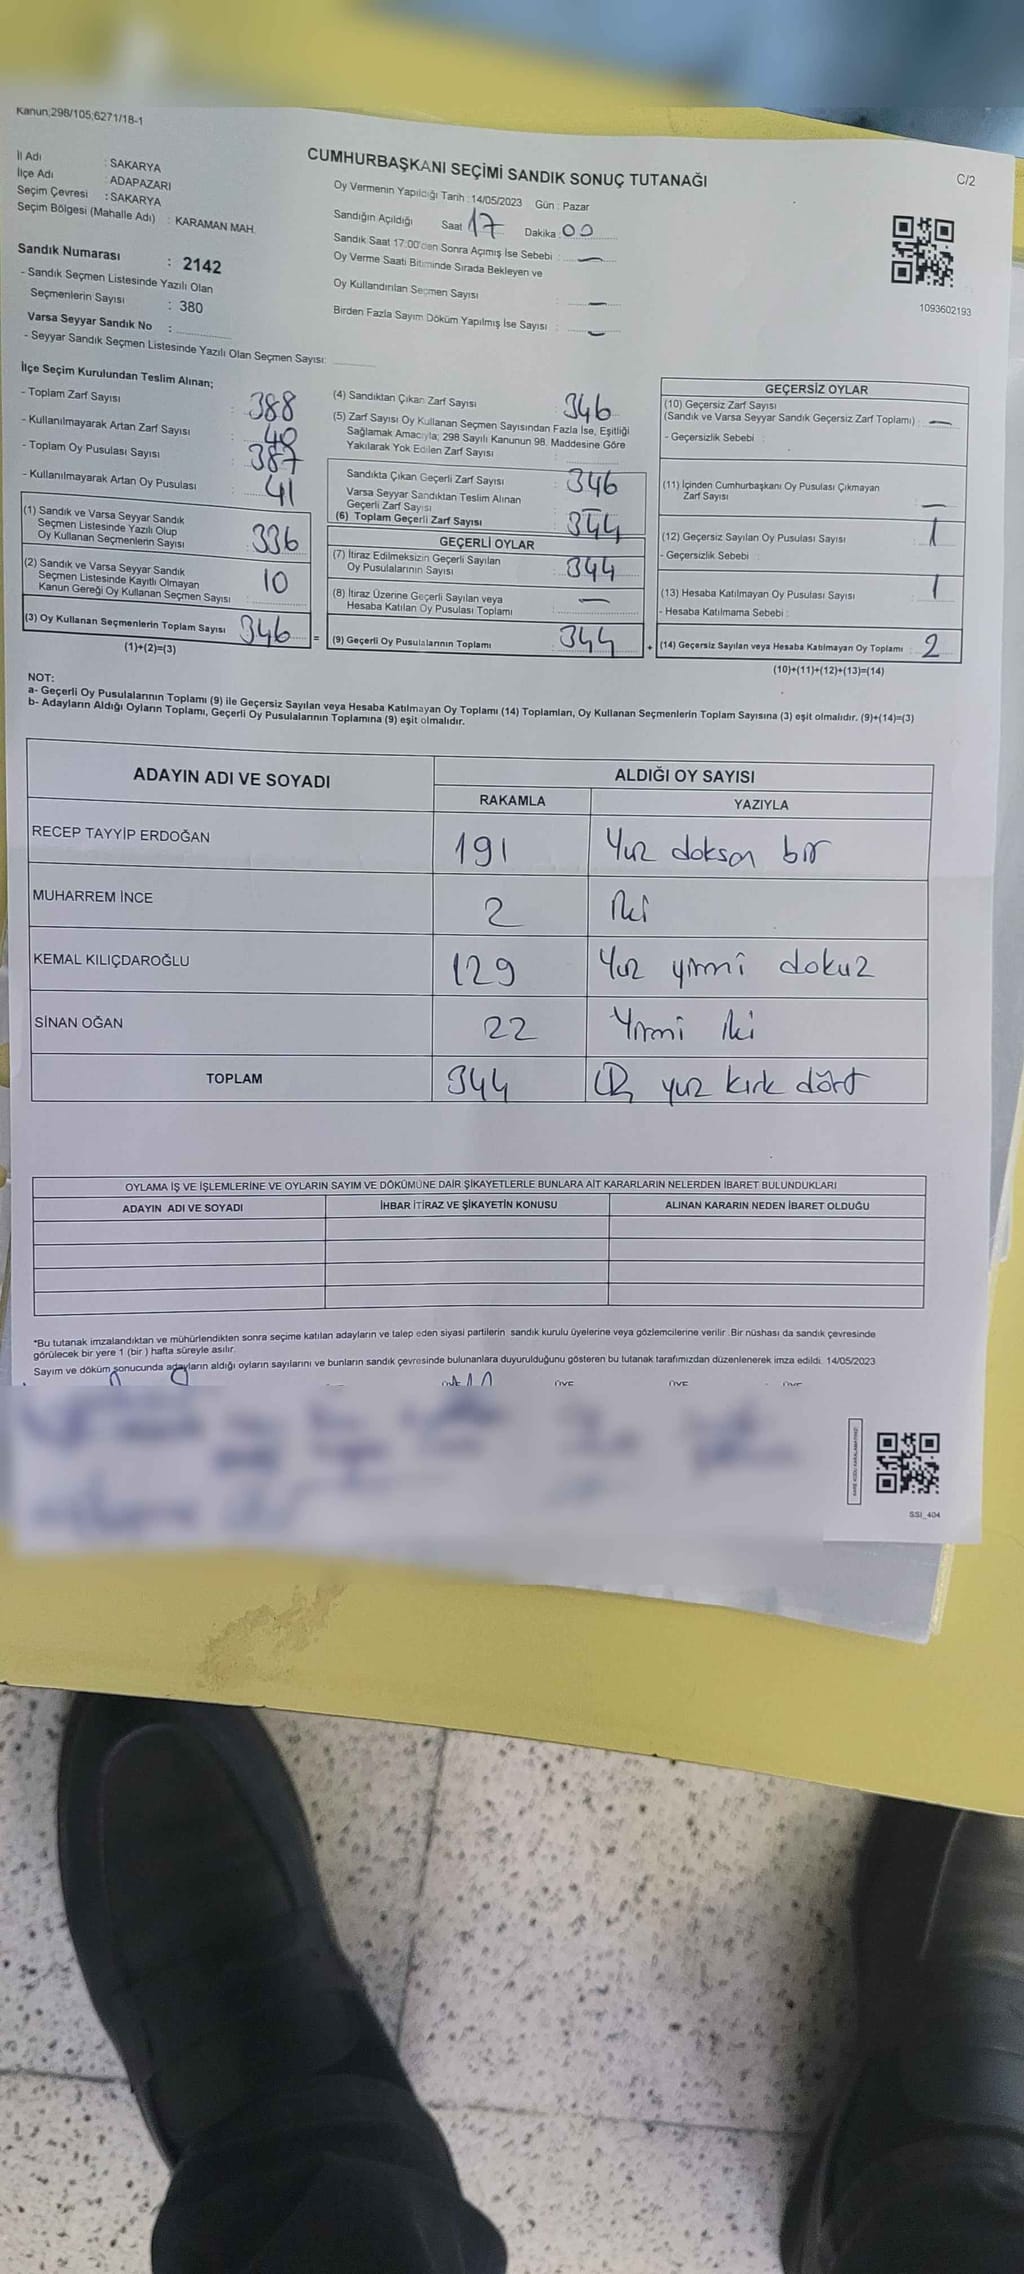 Kanun;298/105;6271/18-1
CUMHURBAŞKANI SEÇİMİ SANDIK SONUÇ TUTANAĞI
C/2
İl Adı : SAKARYA
İlçe Adı : ADAPAZARI
Seçim Çevresi : SAKARYA
Seçim Bölgesi (Mahalle Adı) : KARAMAN MAH.
Sandık Numarası : 2142
- Sandık Seçmen Listesinde Yazılı Olan
Seçmenlerin Sayısı : 380
Varsa Seyyar Sandık No :
- Seyyar Sandık Seçmen Listesinde Yazılı Olan Seçmen Sayısı:
Oy Vermenin Yapıldığı Tarih : 14/05/2023 Gün : Pazar
Sandığın Açıldığı Saat 17 Dakika : 00
Sandık Saat 17:00'den Sonra Açımış İse Sebebi : —
Oy Verme Saati Bitiminde Sırada Bekleyen ve
Oy Kullandırılan Seçmen Sayısı : —
Birden Fazla Sayım Döküm Yapılmış İse Sayısı : —
1093602193
İlçe Seçim Kurulundan Teslim Alınan;
- Toplam Zarf Sayısı : 388
- Kullanılmayarak Artan Zarf Sayısı : 40
- Toplam Oy Pusulası Sayısı : 387
- Kullanılmayarak Artan Oy Pusulası : 41
(1) Sandık ve Varsa Seyyar Sandık
Seçmen Listesinde Yazılı Olup
Oy Kullanan Seçmenlerin Sayısı : 336
(2) Sandık ve Varsa Seyyar Sandık
Seçmen Listesinde Kayıtlı Olmayan
Kanun Gereği Oy Kullanan Seçmen Sayısı : 10
(3) Oy Kullanan Seçmenlerin Toplam Sayısı : 346 =
(1)+(2)=(3)
(4) Sandıktan Çıkan Zarf Sayısı : 346
(5) Zarf Sayısı Oy Kullanan Seçmen Sayısından Fazla İse, Eşitliği
Sağlamak Amacıyla; 298 Sayılı Kanunun 98. Maddesine Göre
Yakılarak Yok Edilen Zarf Sayısı :
Sandıkta Çıkan Geçerli Zarf Sayısı : 346
Varsa Seyyar Sandıktan Teslim Alınan
Geçerli Zarf Sayısı : —
(6) Toplam Geçerli Zarf Sayısı : 344
GEÇERLİ OYLAR
(7) İtiraz Edilmeksizin Geçerli Sayılan
Oy Pusulalarının Sayısı : 344
(8) İtiraz Üzerine Geçerli Sayılan veya
Hesaba Katılan Oy Pusulası Toplamı : —
(9) Geçerli Oy Pusulalarının Toplamı : 344 +
GEÇERSİZ OYLAR
(10) Geçersiz Zarf Sayısı
(Sandık ve Varsa Seyyar Sandık Geçersiz Zarf Toplamı) : —
- Geçersizlik Sebebi :
(11) İçinden Cumhurbaşkanı Oy Pusulası Çıkmayan
Zarf Sayısı : —
(12) Geçersiz Sayılan Oy Pusulası Sayısı : 1
- Geçersizlik Sebebi :
(13) Hesaba Katılmayan Oy Pusulası Sayısı : 1
- Hesaba Katılmama Sebebi :
(14) Geçersiz Sayılan veya Hesaba Katılmayan Oy Toplamı : 2
(10)+(11)+(12)+(13)=(14)
NOT:
a- Geçerli Oy Pusulalarının Toplamı (9) ile Geçersiz Sayılan veya Hesaba Katılmayan Oy Toplamı (14) Toplamları, Oy Kullanan Seçmenlerin Toplam Sayısına (3) eşit olmalıdır. (9)+(14)=(3)
b- Adayların Aldığı Oyların Toplamı, Geçerli Oy Pusulalarının Toplamına (9) eşit olmalıdır.
ADAYIN ADI VE SOYADI ALDIĞI OY SAYISI
RAKAMLA YAZIYLA
RECEP TAYYİP ERDOĞAN 191 Yuz doksan bir
MUHARREM İNCE 2 İki
KEMAL KILIÇDAROĞLU 129 Yuz yirmi dokuz
SİNAN OĞAN 22 Yirmi iki
TOPLAM 344 yuz kırk dört
OYLAMA İŞ VE İŞLEMLERİNE VE OYLARIN SAYIM VE DÖKÜMÜNE DAİR ŞİKAYETLERLE BUNLARA AİT KARARLARIN NELERDEN İBARET BULUNDUKLARI
ADAYIN ADI VE SOYADI İHBAR İTİRAZ VE ŞİKAYETİN KONUSU ALINAN KARARIN NEDEN İBARET OLDUĞU
*Bu tutanak imzalandıktan ve mühürlendikten sonra seçime katılan adayların ve talep eden siyasi partilerin sandık kurulu üyelerine veya gözlemcilerine verilir. Bir nüshası da sandık çevresinde
görülecek bir yere 1 (bir ) hafta süreyle asılır.
Sayım ve döküm sonucunda adayların aldığı oyların sayılarını ve bunların sandık çevresinde bulunanlara duyurulduğunu gösteren bu tutanak tarafımızdan düzenlenerek imza edildi. 14/05/2023
SSI_404